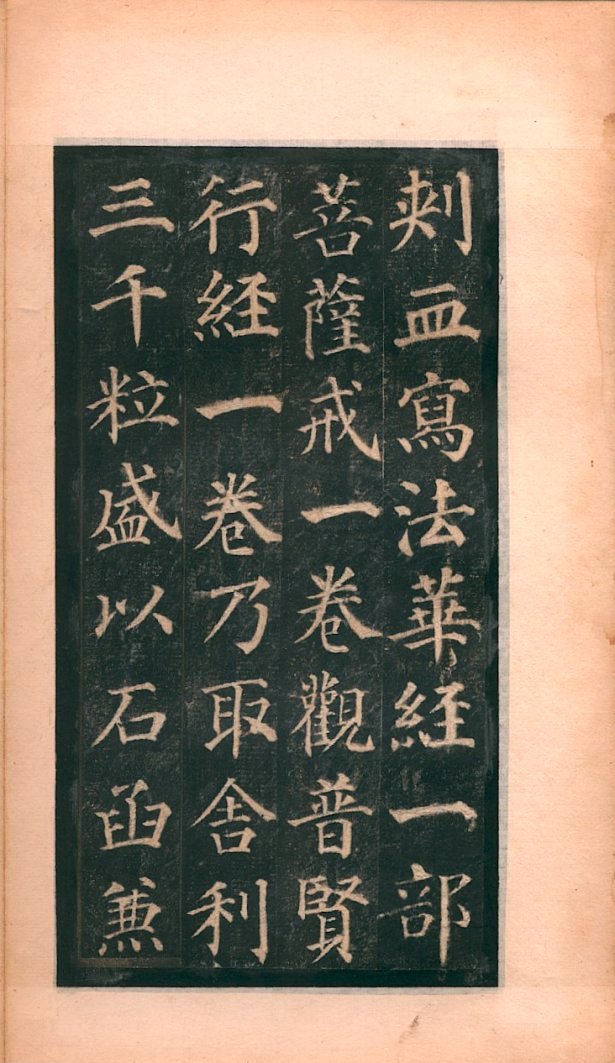 刾血寫法華経一部
菩薩戒一卷觀普賢
行経一卷乃取舎利
三千粒盛以石函兼